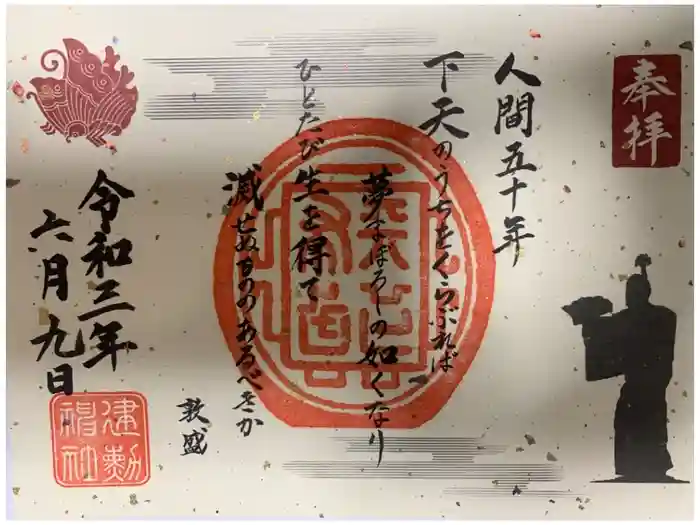 奉拝
人間五十年
下天のうちをくらぶれば
夢まぼろしの如くなり
ひとたび生を得て
滅せぬもののあるべきか
敦盛
令和三年
六月九日
建勲神社